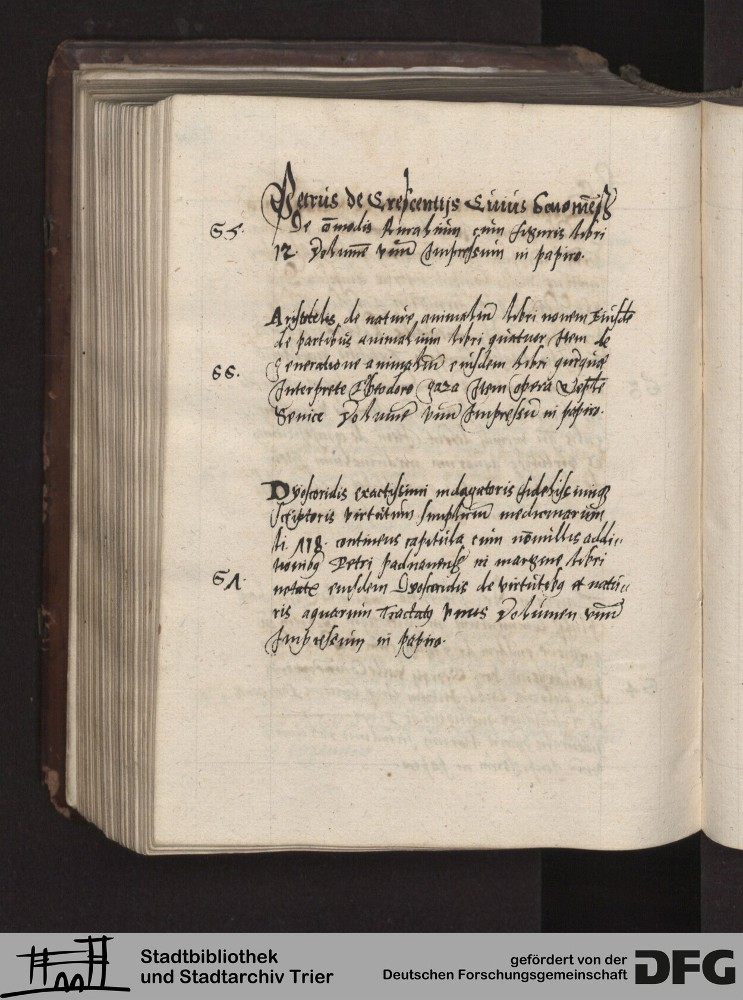 Petrus de Crescentijs Civius bono[n]ie[n]sis
65. De co[m]modis Ruralium cum figuris libri
12. Volume[n] vnu[m] Impressum in papiro.
Aristotelis de nature animaliu[m] libri novem Eiusde[m]
de partibus animalium libri quatuor Item de
66. generatione animaliu[m] eiusdem libri quinq[ue]
Interprete Theodoro gaza Item opera
Volume[n] vnu[m] Impressu[m] in papiro.
Dyoscoridis exactissimi indagatoris fidelissimiq[ue]
scriptoris virtutum simpliciu[m] medicinarum
li. 118. continens capitula cum no[n]nullis addi„
tionibq Petri paduanensis in margine libri
67. notate eiusdem Dyoscoridis de virtutibq et natu„
ris aquarum Tractatq vnus Volumen vnu[m]
Impressum in papiro.
Stadtbibliothek
und Stadtarchiv Trier
gefördert von der
Deutschen Forschungsgemeinschaft
DFG